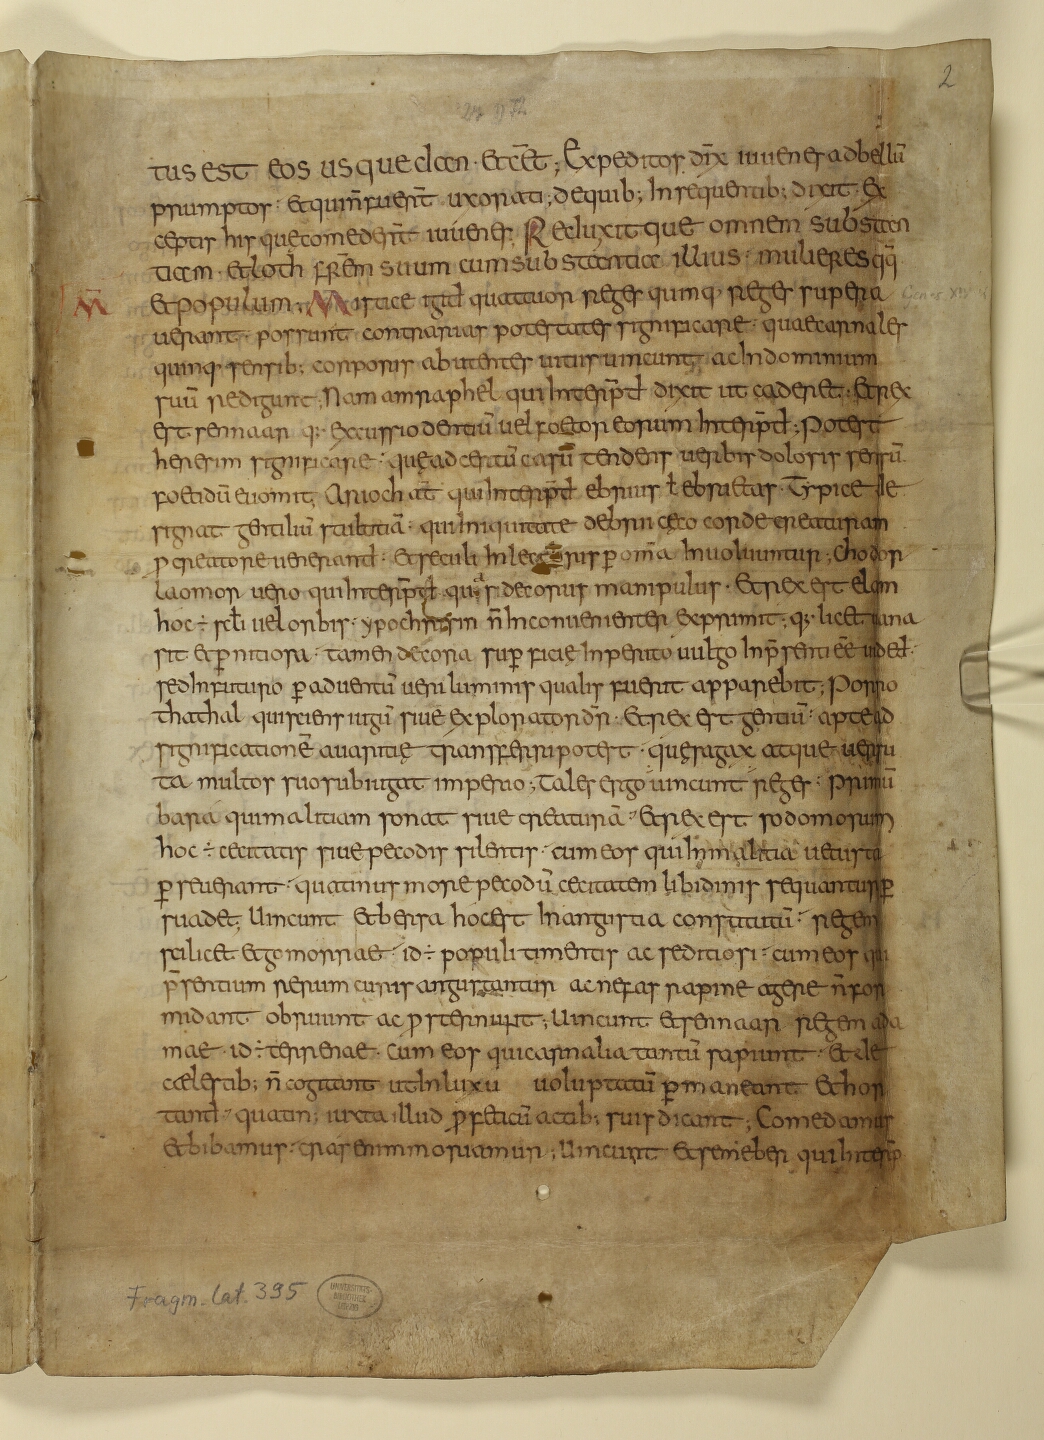 2
tus est eos usque dan · et cēt; Expeditos dix̄ iuuenes ad bellū
prumptos · et qui n̄ fuer̄t uxorati; de quib; In sequentib; dixit · Ex
ceptis his quę comeder̄t iuuenes. Reduxitque omnem substan
tiam · et loth fr̄em suum cum substantia illius · mulieres qq̄
et populum; Mistice igit̄ quattuor reges quinq· reges supera
M̄
uerant · possunt contrarias potestates significare · quae carnales
quinq· sensib; corporis abutentes uitiis uincunt, ac In dominium
suū redigunt; Nam amraphel qui Interp̄t̄ dixit ut caderet · Et rex
est sennaar q; excussio dentiū uel foetor eorum Interp̄t̄; Potest
heresim significare · quę ad certū casū tendens uerbis doloris sensū
foetidū euomit; Arioch at̄ qui Interp̄t̄ ebrius ł ebrietas · Typice de
signat gentiliū stultitiā · qui Iniquitate debrii cęco corde creaturam
p creatore uenerant̄ · et seculi Inlecebris p om̄a Inuoluuntur; Chodor
laomor uero qui Interp̄t̄ quasi decorus manipulus · Et rex est elam
hoc ÷ scł̄i uel orbis · ypochrisin n̄ Inconuenienter exprimit, q; licet uana
sit et pnitiosa · tamen decora supficię Inperito uulgo In p̄senti ēē uidet̄·
sed In futuro p aduentū ueri luminis qualis fuerit apparebit; Porro
thathal qui sciens iugū siue explorator dr̄ · et rex est gentiū · apte ad
significationē auaritię transferri potest · quę sagax atque uersu
ta multos suo subiugat imperio; Tales ergo uincunt reges · Primū
bara qui malitiam sonat siue creaturā · et rex est sodomorum
hoc ÷ cecitatis siue pecodis silentis · cum eos qui In malitia uetusta
pseuerant · quatinus more pecodū cecitatem libidinis sequantur p
suadet; Uincunt et bersa hoc est In angustia constitutū · regem
scilicet et gomorrae · id ÷ populi timentis ac seditiosi · cum eos qui
p̄sentium rerum curis angustantur ac nefas rapine agere n̄ for
midant obruunt ac psternunt; Uincunt et sennaar regem ada
mae · id ÷ terrenae · Cum eos qui carnalia tantū sapiunt · et de
cęlestib; n̄ cogitant ut In luxu uoluptatū pmaneant · et hor
tant̄ · quatin; iuxta illud pfeticū actib; suis dicant; Comedamus
et bibamus · cras enim moriamur; Uincunt et semeber qui Interp̄
Fragm. lat. 395